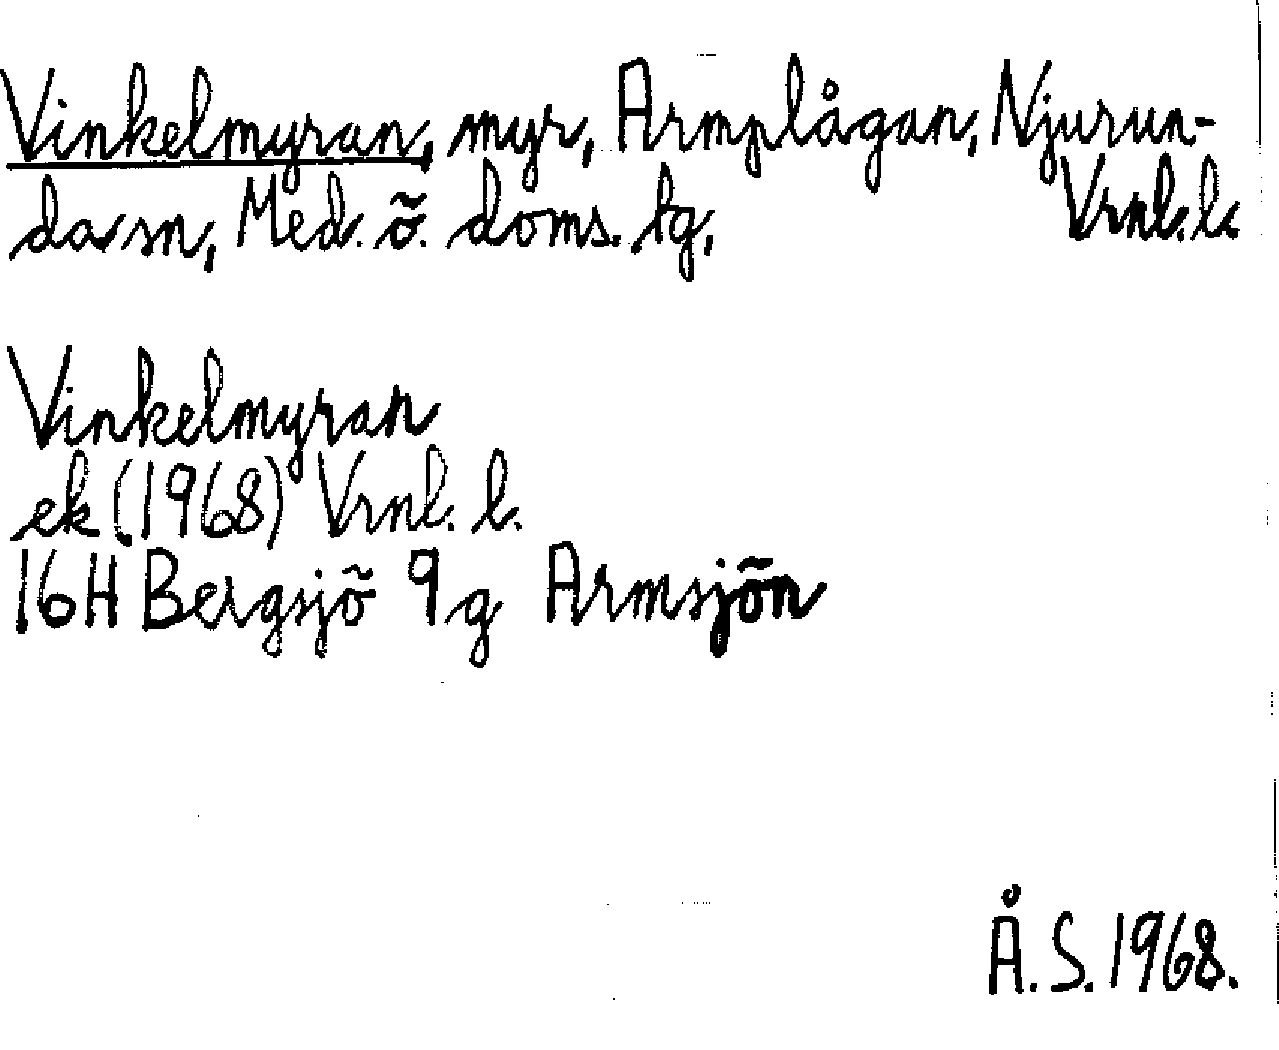 Vinkelmyran, myr, Armplågan, Njurun-
da sn, Med. ö. doms. lg, Vrnl. l.
Vinkelmyran
ek (1968) Vrnl. l.
16H Bergsjö 9g Armsjön
Å. S. 1968.